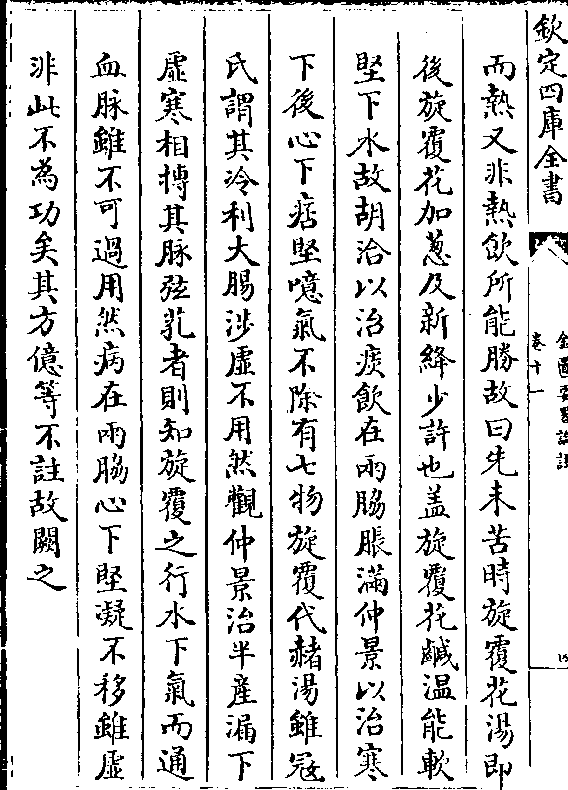 欽定四庫全書
金匱要畧論註
卷十一
而熱又非熱飲所能勝故曰先未苦時旋覆花湯即
後旋覆花加蔥及新絳少許也盖旋覆花鹹温能軟
堅下水故胡洽以治痰飲在兩脇脹滿仲景以治寒
下後心下痞堅噫氣不除有七物旋覆代赭湯雖冦
氏謂其冷利大腸涉虛不用然觀仲景治半産漏下
虛寒相搏其脉弦芤者則知旋覆之行水下氣而通
血脉雖不可過用然病在兩脇心下堅凝不移雖虛
非此不為功矣其方億等不註故闕之